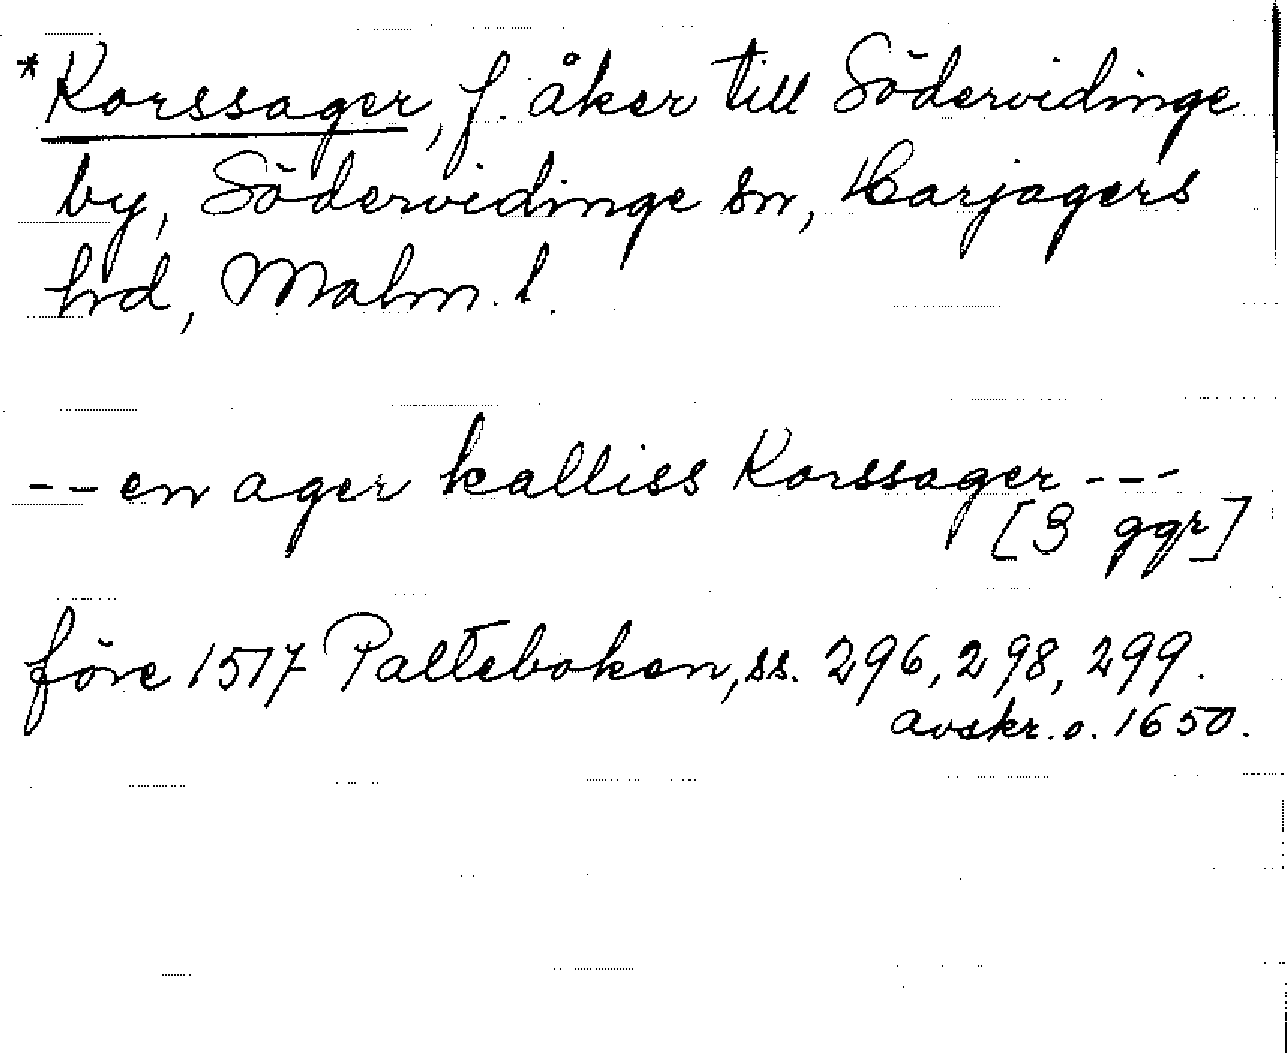 * Korssager, f. åker till Södervidinge
by, Södervidinge sn, Harjagers
hrd, Malm. l.
-- en ager kalliss Korssager ---
[3 ggr]
före 1517 Palteboken, ss. 296, 298, 299.
avskr. o. 1650.